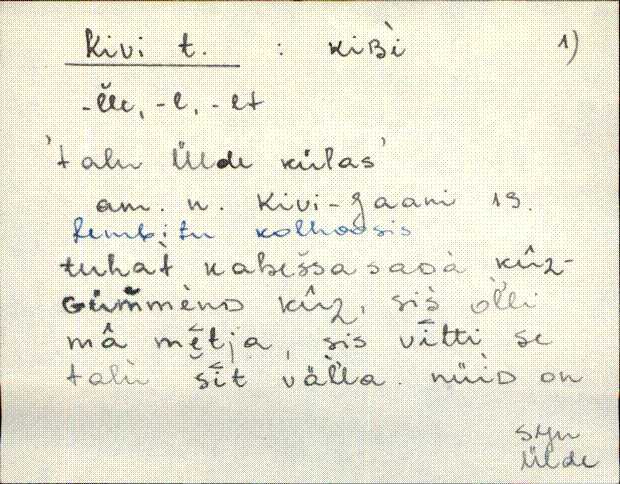 Kivi t. : kiʙ̀i 1)
-l̆le, -l, -lt
'talu Ülde külas'
am. n. Kivi-Jaani 19.
Lembitu kolhoosis
tuhat̀ kaheššasaᴅà kûz-
ɢümmènᴅ kûz, siš òlli
mâ mètja, sis vìtti se
talù šìt vällà. nüiᴅ on
SJn
Ülde